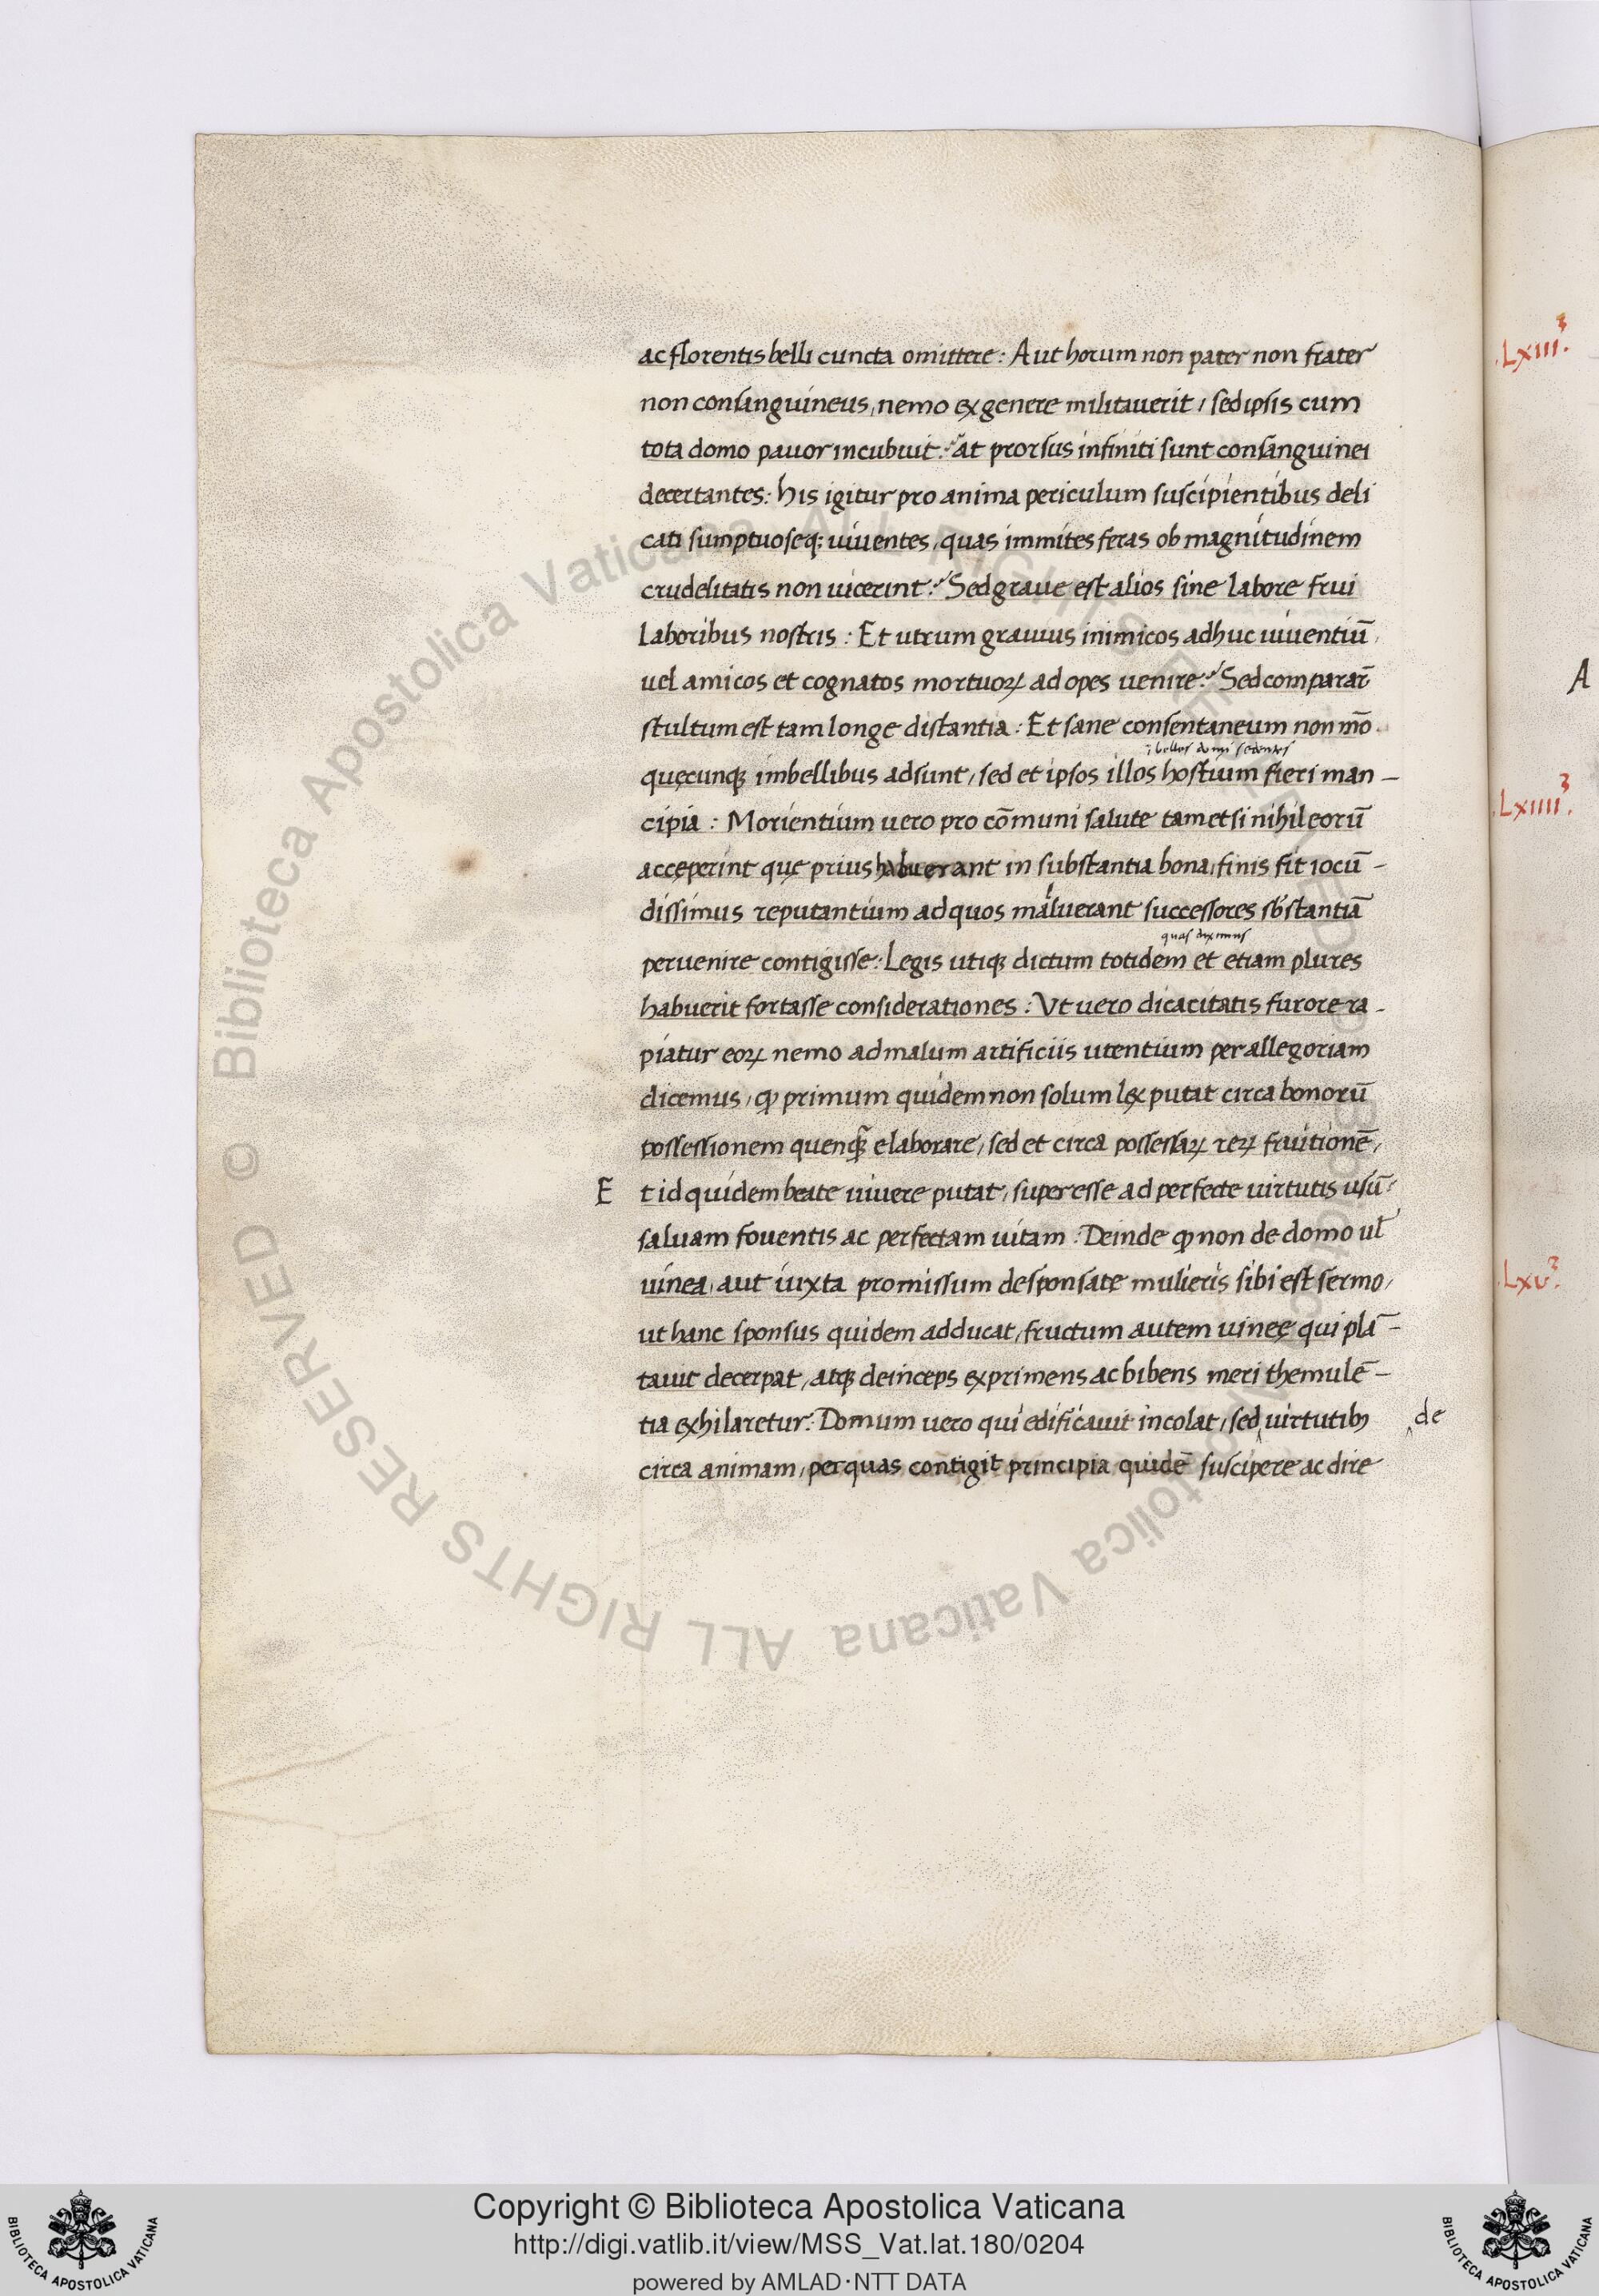 ac florentis belli cuncta omittere: Aut horum non pater non frater
non consanguineus, nemo ex genere militauerit, sed ipsis cum
tota domo pauor incubuit: At prorsus infiniti sunt consanguinei
decertantes: His igitur pro anima periculum suscipientibus deli
cati sumptuoseq; uiuentes, quas immites feras ob magnitudinem
crudelitatis non uicerint: Sed graue est alios sine labore frui
laboribus nostris: Et utrum grauius inimicos adhuc uiuentiū,
uel amicos et cognatos mortuoꝝ ad opes uenire: Sed comparar̄
stultum est tam longe distantia: Et sane consentaneum non mō
domi sedentes
quęcunqꝫ imbellibus adsunt, sed et ipsos illos hostium fieri man-
cipia: Morientium uero pro cōmuni salute tametsi nihil eorū
acceperint quę prius habuerant in substantia bona, finis fit iocū-
dissimus reputantium ad quos maluerant successores sb̄stantiā
quas diximus
peruenire contigisse: Legis utiqꝫ dictum totidem et etiam plures
habuerit fortasse considerationes: Vt uero dicacitatis furore ra-
piatur eoꝝ nemo ad malum artificiis utentium per allegoriam
dicemus, ꝙ primum quidem non solum lex putat circa bonorū
possessionem quenqꝫ elaborare, sed et circa possessaꝝ reꝝ fruitionē,
E t id quidem beate uiuere putat, superesse ad perfecte uirtutis usū:
saluam fouentis ac perfectam uitam: Deinde ꝙ non de domo ul̄
uinea, aut iuxta promissum desponsate mulieris sibi est sermo,
ut hanc sponsus quidem adducat, fructum autem uineę qui plā-
tauit decerpat, atqꝫ deinceps exprimens ac bibens meri themulē-
tia exhilaretur: Domum uero qui edificauit incolat, sed ‸ uirtutibꝫ ‸de
circa animam, per quas contigit principia quidē suscipere ac dire
.Lxiii.
A
.Lxiiii.
.Lxv.
© Biblioteca Apostolica Vaticana ALL RIGHTS RESERVED
Copyright © Biblioteca Apostolica Vaticana
http://digi.vatlib.it/view/MSS_Vat.lat.180/0204
powered by AMLAD·NTT DATA
BIBLIOTECA APOSTOLICA VATICANA
BIBLIOTECA APOSTOLICA VATICANA